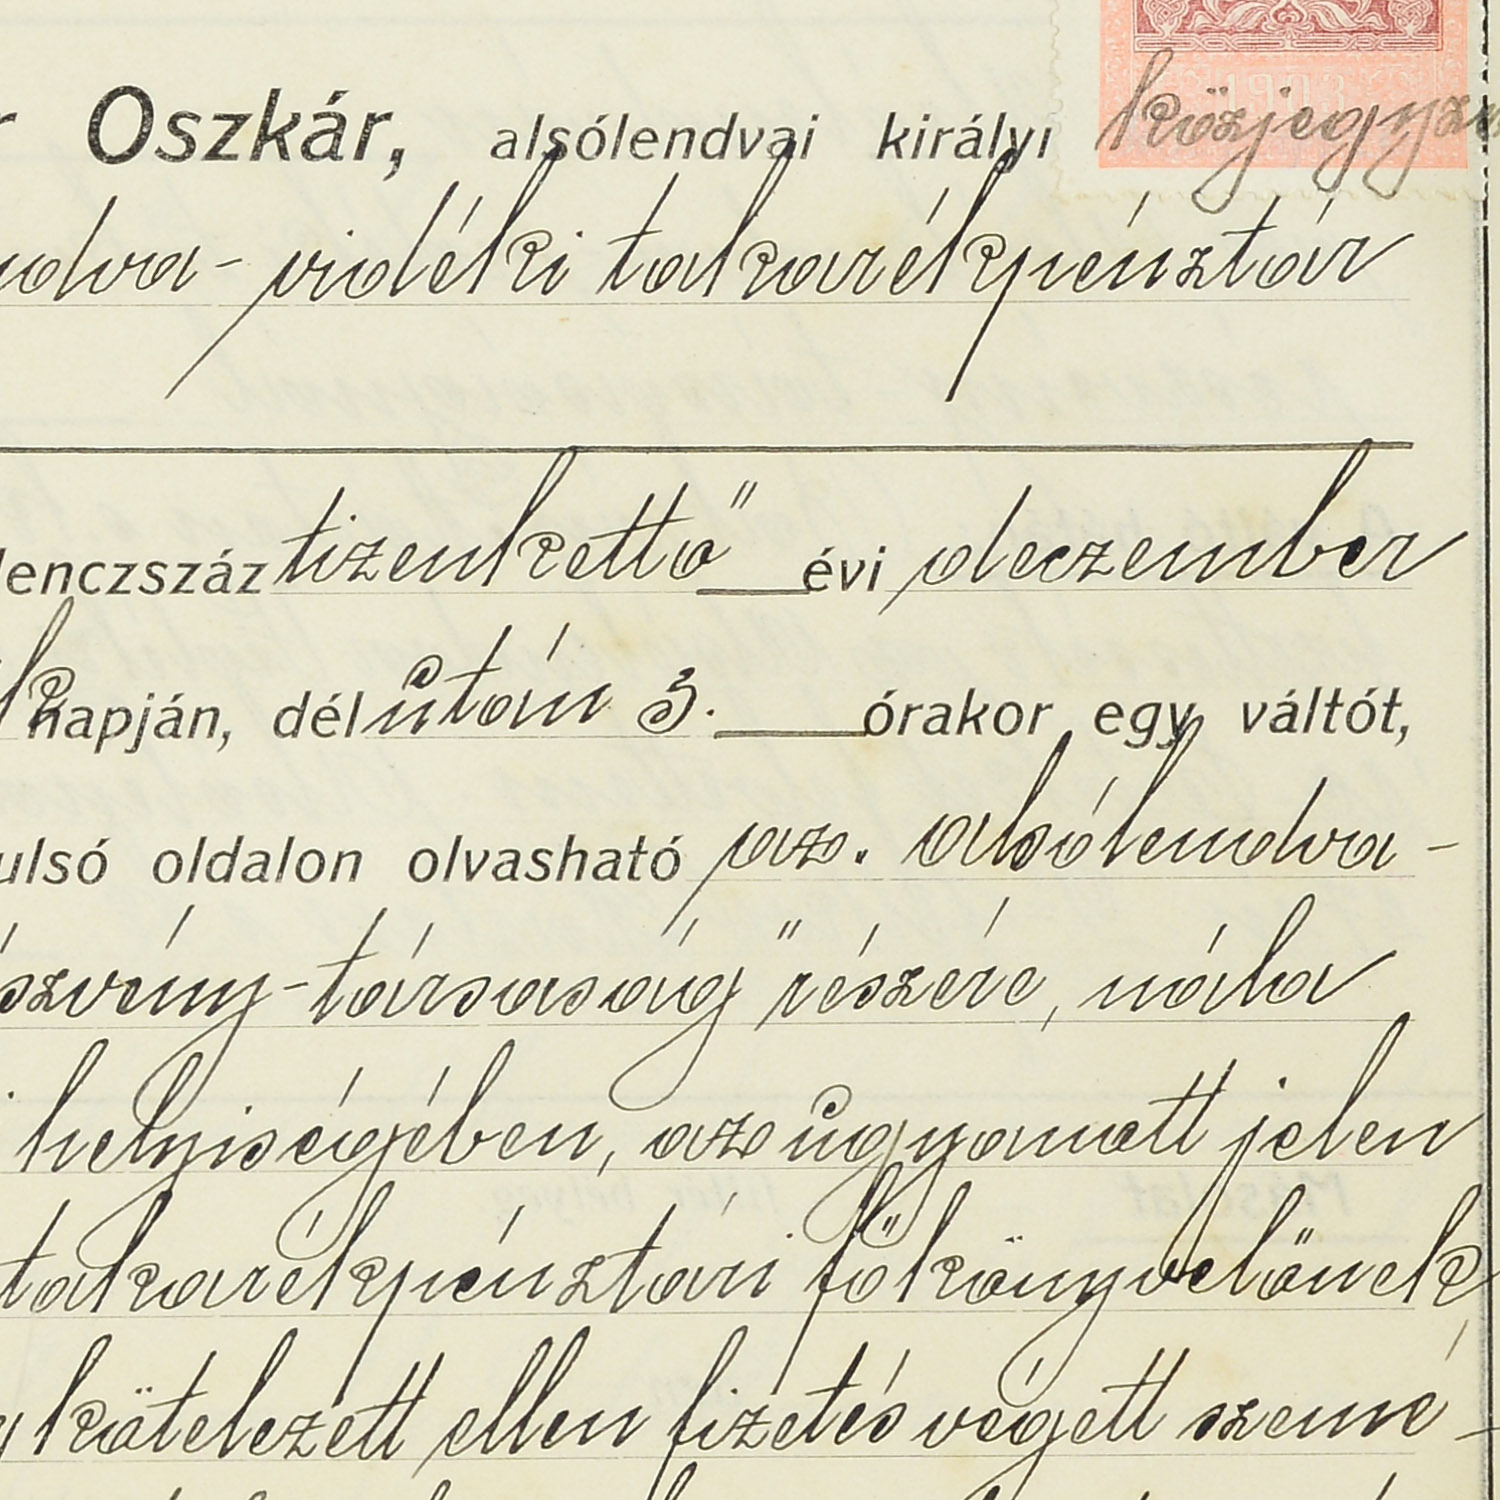 r Oszkár, alsólendvai királyi közjegyző
ndva-vidéki takarékpénztár
lenczszáz tizenkettő évi deczember
k napján, délután 3. órakor egy váltót,
ulsó oldalon olvasható az. alsólendva-
észvény-társaság" részére, nála
helyiségében, az ugyanott jelen
takarékpénztári főkönyvelőnek,
y kötelezett ellen fizetés végett szemé-